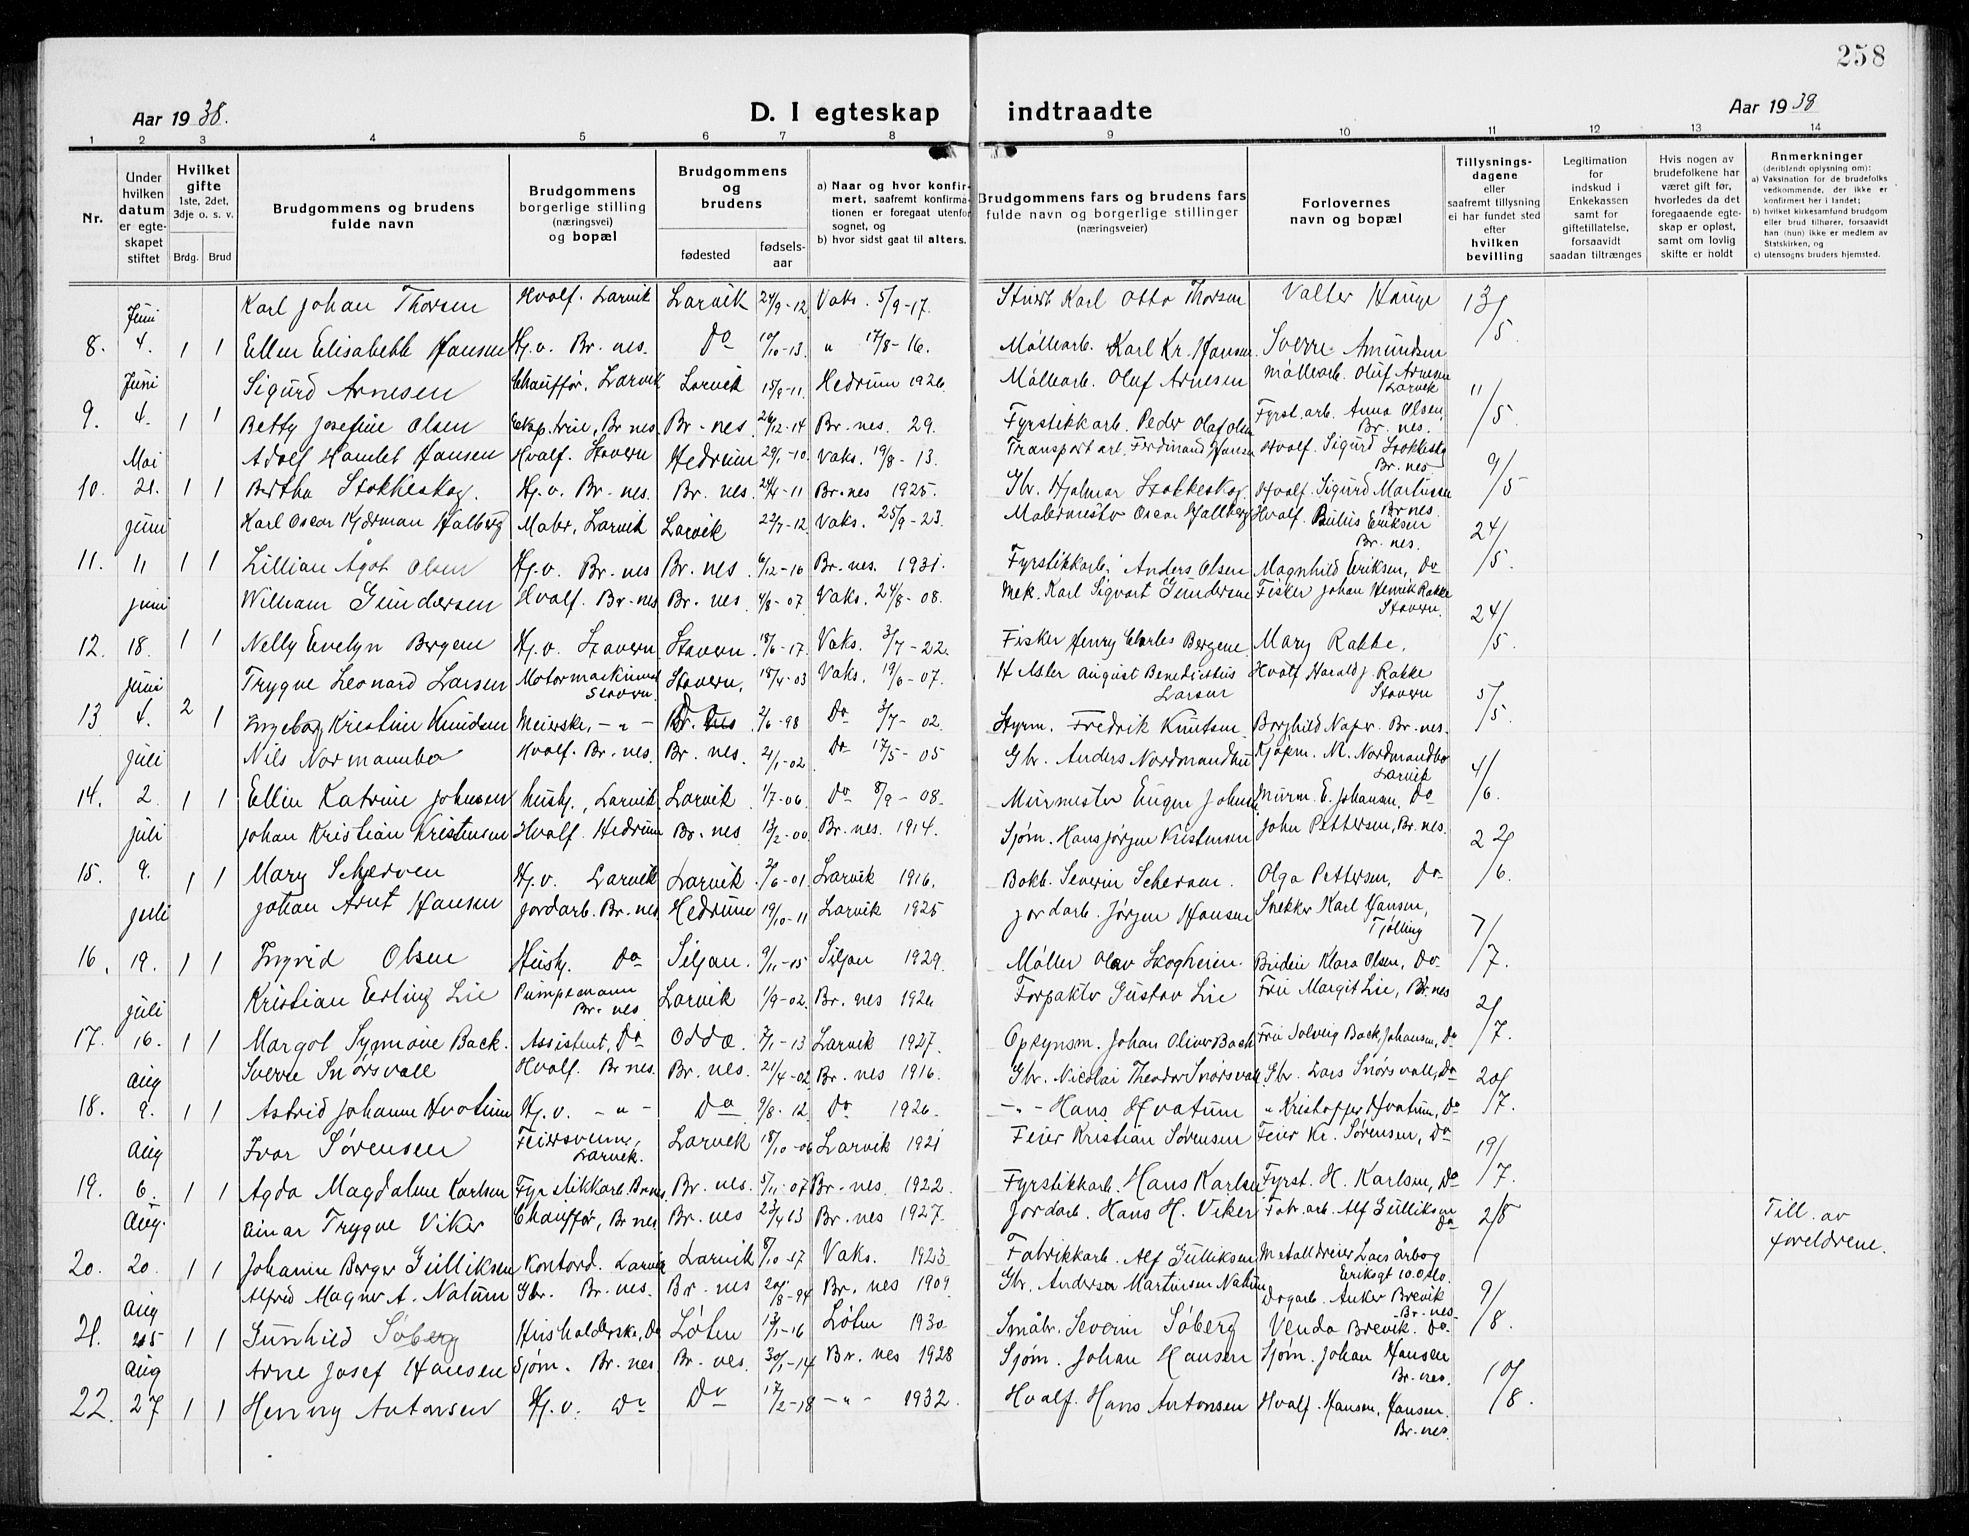 258
Aar 1938.
D. I egteskap indtraadte
Aar 1938
1 2 3 4 5 6 7 8 9 10 11 12 13 14
Nr.
Under hvilken datum er egteskapet stiftet
Hvilket gifte 1ste, 2det, 3dje o. s. v.
Brdg. Brud
Brudgommens og brudens fulde navn
Brudgommens borgerlige stilling (næringsvei) og bopæl
Brudgommens og brudens
fødested fødsels-aar
a) Naar og hvor konfirmert, saafremt konfirmationen er foregaat utenfor sognet, og
b) hvor sidst gaat til alters.
Brudgommens fars og brudens fars fulde navn og borgerlige stillinger (næringsveier)
Forlovernes navn og bopæl
Tillysningsdagene eller saafremt tillysning ei har fundet sted efter hvilken bevilling
Legitimation for indskud i Enkekassen samt for giftetillatelse, forsaavidt saadan tiltrænges
Hvis nogen av brudefolkene har været gift før, hvorledes da det foregaaende egteskap er opløst, samt om lovlig skifte er holdt
Anmerkninger (deriblandt oplysning om):
a) Vaksination for de brudefolks vedkommende, der ikke er konfirmert her i landet;
b) hvilket kirkesamfund brudgom eller brud tilhører, forsaavidt han (hun) ikke er medlem av Statskirken, og
c) utensogns bruders hjemsted.
Juni Karl Johan Thorsen Hvalf. Larvik Larvik 24/9-12 Vaks. 5/9-17. Karl Otto Thorsen Valter Hauge 13/5
8. 4. 1 1 Ellen Elisabeth Hansen Hj.v. Br.nes. Do 10/10-13. " 17/8-16. Møllearb. Karl Kr. Hansen Sverre Amundsen
Juni Sigurd Arnesen Chauffør, Larvik Larvik 15/9-11 Hedrum 1926 Møllearb. Oluf Arnesen Møllearb. Oluf Arnesen Larvik 11/5
9. 4. 1 1 Betty Josefine Olsen Br nes Br-nes. 26/12-14 Br-nes. 29. Fyrstikkarb. Peder Olaf Olsen Fyrst.arb. Anna Olsen, Br. nes.
Mai Adolf Hamlet Hansen Hvalf. Stavern Hedrum 29/1-10. Vaks. 19/8-13. Transportarb. Ferdinand Hansen Hvalf. Sigurd Stokkeskog Br-nes 9/5
10. 21. 1 1 Bertha Stokkeskog. Hj.v. Br-nes. Br. nes. 24/4-11 Br-nes 1925. Gbr. Hjalmar Stokkeskog. Hvalf. Sigurd Martinsen Br nes.
Juni Karl Oscar Hjerman Halberg Maler, Larvik Larvik 22/7-12. Vaks. 25/9-23. Malermester Oscar Hallberg Hvalf. Julius Eriksen Br. nes. 24/5
11. 11 1 1 Lillian Ågot Olsen Hj.v. Br. nes Br. nes. 6/12-10 Br.nes. 1931. Fyrstikkarb. Anders Olsen Magnhild Eriksen, Do
Juni William Gundersen Hvalf. Br-nes Br. nes. 4/8-07 Vaks. 24/8-08. Mek. Karl Sigvart Gundersen Fisker Johan Henrik Rakke Stavern. 24/5
12. 18. 1 1 Nelly Evelyn Bergene Hj.v. Stavern Stavern. 18/6-17. Vaks. 3/7-22. Fisker Henry Charles Bergene Mary Rakke.
Juni Trygve Leonard Larsen Motormaskinist Stavern Stavern. 18/4-03 Vaks. 19/6-07. August Benedictus Larsen Hvalf Harald J. Rakke Stavern 5/5
13 4. 2 1 Ingeborg Kristine Knudsen Meierske, -"- Do 2/6-98 Do 3/7-02. Styrm. Fredrik Knutsen Borghild Naper. Br.-nes.
Juli Nils Normannbo Hvalf. Br-nes. Br. nes. 21/1-02 Do 17/5-05 Gbr. Anders Nordmandbu Kjøpm. M. Nordmandbo Larvik 4/6
14. 2. 1 1 Ellen Katrine Johnsen Hushj., Larvik. Larvik. 1/7-06. Do 8/9-08. Murmester Eugen Johnsen Murm. E. Johansen, Do
Juli Johan Kristian Kristensen Hvalf. Hedrum Br-nes 13/2-00. Br-nes. 1914. Sjøm. Hans Jørgen Kristensen John Pettersen, Br. nes. 22/6.
15. 9. 1 1 Mary Scherven Hj.v. Larvik Larvik. 2/6-01 Larvik 1916. Bokb. Severin Scherven. Olga Pettersen, Do
Juli Johan Arnt Hansen Jordarb. Br. nes Hedrum 19/10-11 Larvik 1925 Jordarb. Jørgen Hansen Snekker Karl Hansen, Tjølling 7/7.
16. 19. 1 1 Ingrid Olsen Hushj. Do Siljan. 9/11-15 Siljan 1929. Møller Olav Skogheim. Bruden Klara Olsen, Do
Juli Kristian Erling Lie Pumpemann Br. nes Larvik 1/9-02. Br. nes 1926. Forpakter Gustav Lie Fru Margit Lie, Br. nes 2/7.
17. 16. 1 1 Margot Synnøve Back. Assistent, Do Odda. 7/1-13 Larvik 1927. Opsynsm. Johan Oliver Back Fru Solveig Back Johansen, Do
Aug Sverre Snørsvall Hvalf. Br nes. Br. nes. 21/4-02 Br. nes 1916. Gbr. Nicolai Theodor Snørsvall. Gbr. Lars Snørsvall, Do 20/7.
18. 9. 1 1 Astrid Johanne Hvatum Hj.v. -"- Do 9/8-12 Do 1926. -"- Hans Hvatum " Kristoffer Hvatum, Do
Aug Ivar Sørensen Feiersvenn, Larvik. Larvik 18/10-06 Larvik 1921 Feier Kristian Sørensen Feier Kr. Sørensen, Do 19/7.
19. 6. 1 1 Agda Magdalene Karlsen Fyrstikkarb. Br.nes. Br. nes. 5/11-07 Br. nes. 1922. Fyrstikkarb. Hans Karlsen Fyrst. H. Karlsen, Do
Aug. Einar Trygve Viker Chauffør, Br nes Br. nes 23/4 13 Br. nes 1927. Jordarb. Hans H. Viker Fabr.arb. Alf Gulliksen Do 2/8 Till. av foreldrene.
20. 20. 1 1 Johanne Berger Gulliksen Kontord. Larvik Larvik 8/10-17 Vaks. 1923 Fabrikkarb. Alf Gulliksen Metalldreier Lars Årbog Eriksgt 10. Oslo.
Aug Alfred Magner A. Nalum Gbr. Br. nes. Br. nes 20/8-94 Br. nes 1909 Gbr. Anderser Martinsen Nalum Dagarb. Anker Brevik Br. nes 9/8.
21. 25 1 1 Gunhild Søberg Husholderske, Do Løten 13/1-16 Løten 1930. Småbr. Severin Søberg Venda Brevik. Do.
Aug Arne Josef Hansen Sjøm. Br. nes. Br. nes. 30/1-14 Br. nes 1928 Sjøm. Johan Hansen Sjøm. Johan Hansen Br.nes. 10/8.
22. 27 1 1 Henny Antonsen Hj.v. Do Do 17/2-18 -"- 1932. Hvalf. Hans Antonsen Hvalf. Hansen, Hansen. Br-nes.